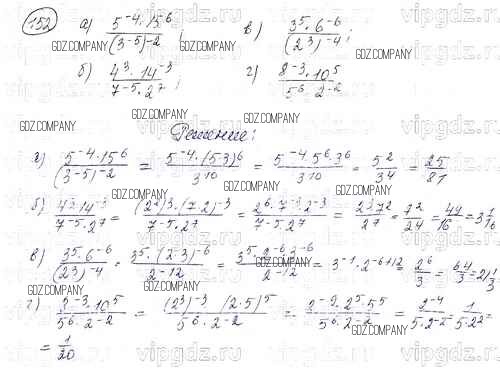 152 а) 5^-4 · 15^6 / (3^-5)^-2 ; в) 3^5 · 6^-6 / (2^3)^-4 ;
б) 4^3 · 14^-3 / 7^-5 · 2^7 ; г) 8^-3 · 10^5 / 5^6 · 2^-2
Решение:
5^-4 · 15^6 / (3^-5)^-2 = 5^-4 · (5·3)^6 / 3^10 = 5^-4 · 5^6 · 3^6 / 3^10 = 5^2 / 3^4 = 25 / 81
б) 4^3 · 14^-3 / 7^-5 · 2^7 = (2^2)^3 · (7·2)^-3 / 7^-5 · 2^7 = 2^6 · 7^-3 · 2^-3 / 7^-5 · 2^7 = 2^3 7^2 / 2^7 = 7^2 / 2^4 = 49 / 16 = 3 1/16
в) 3^5 · 6^-6 / (2^3)^-4 = 3^5 · (2·3)^-6 / 2^-12 = 3^5 · 2^-6 · 2^-6 / 2^-12 = 3^-1 · 2^-6+12 = 2^6 / 3 = 64 / 3 = 21 1/3
г) 8^-3 · 10^5 / 5^6 · 2^-2 = (2^3)^-3 · (2·5)^5 / 5^6 · 2^-2 = 2^-9 · 2^5 · 5^5 / 5^6 · 2^-2 = 2^-4 / 5·2^-2 = 1 / 5·2^2 =
= 1 / 20